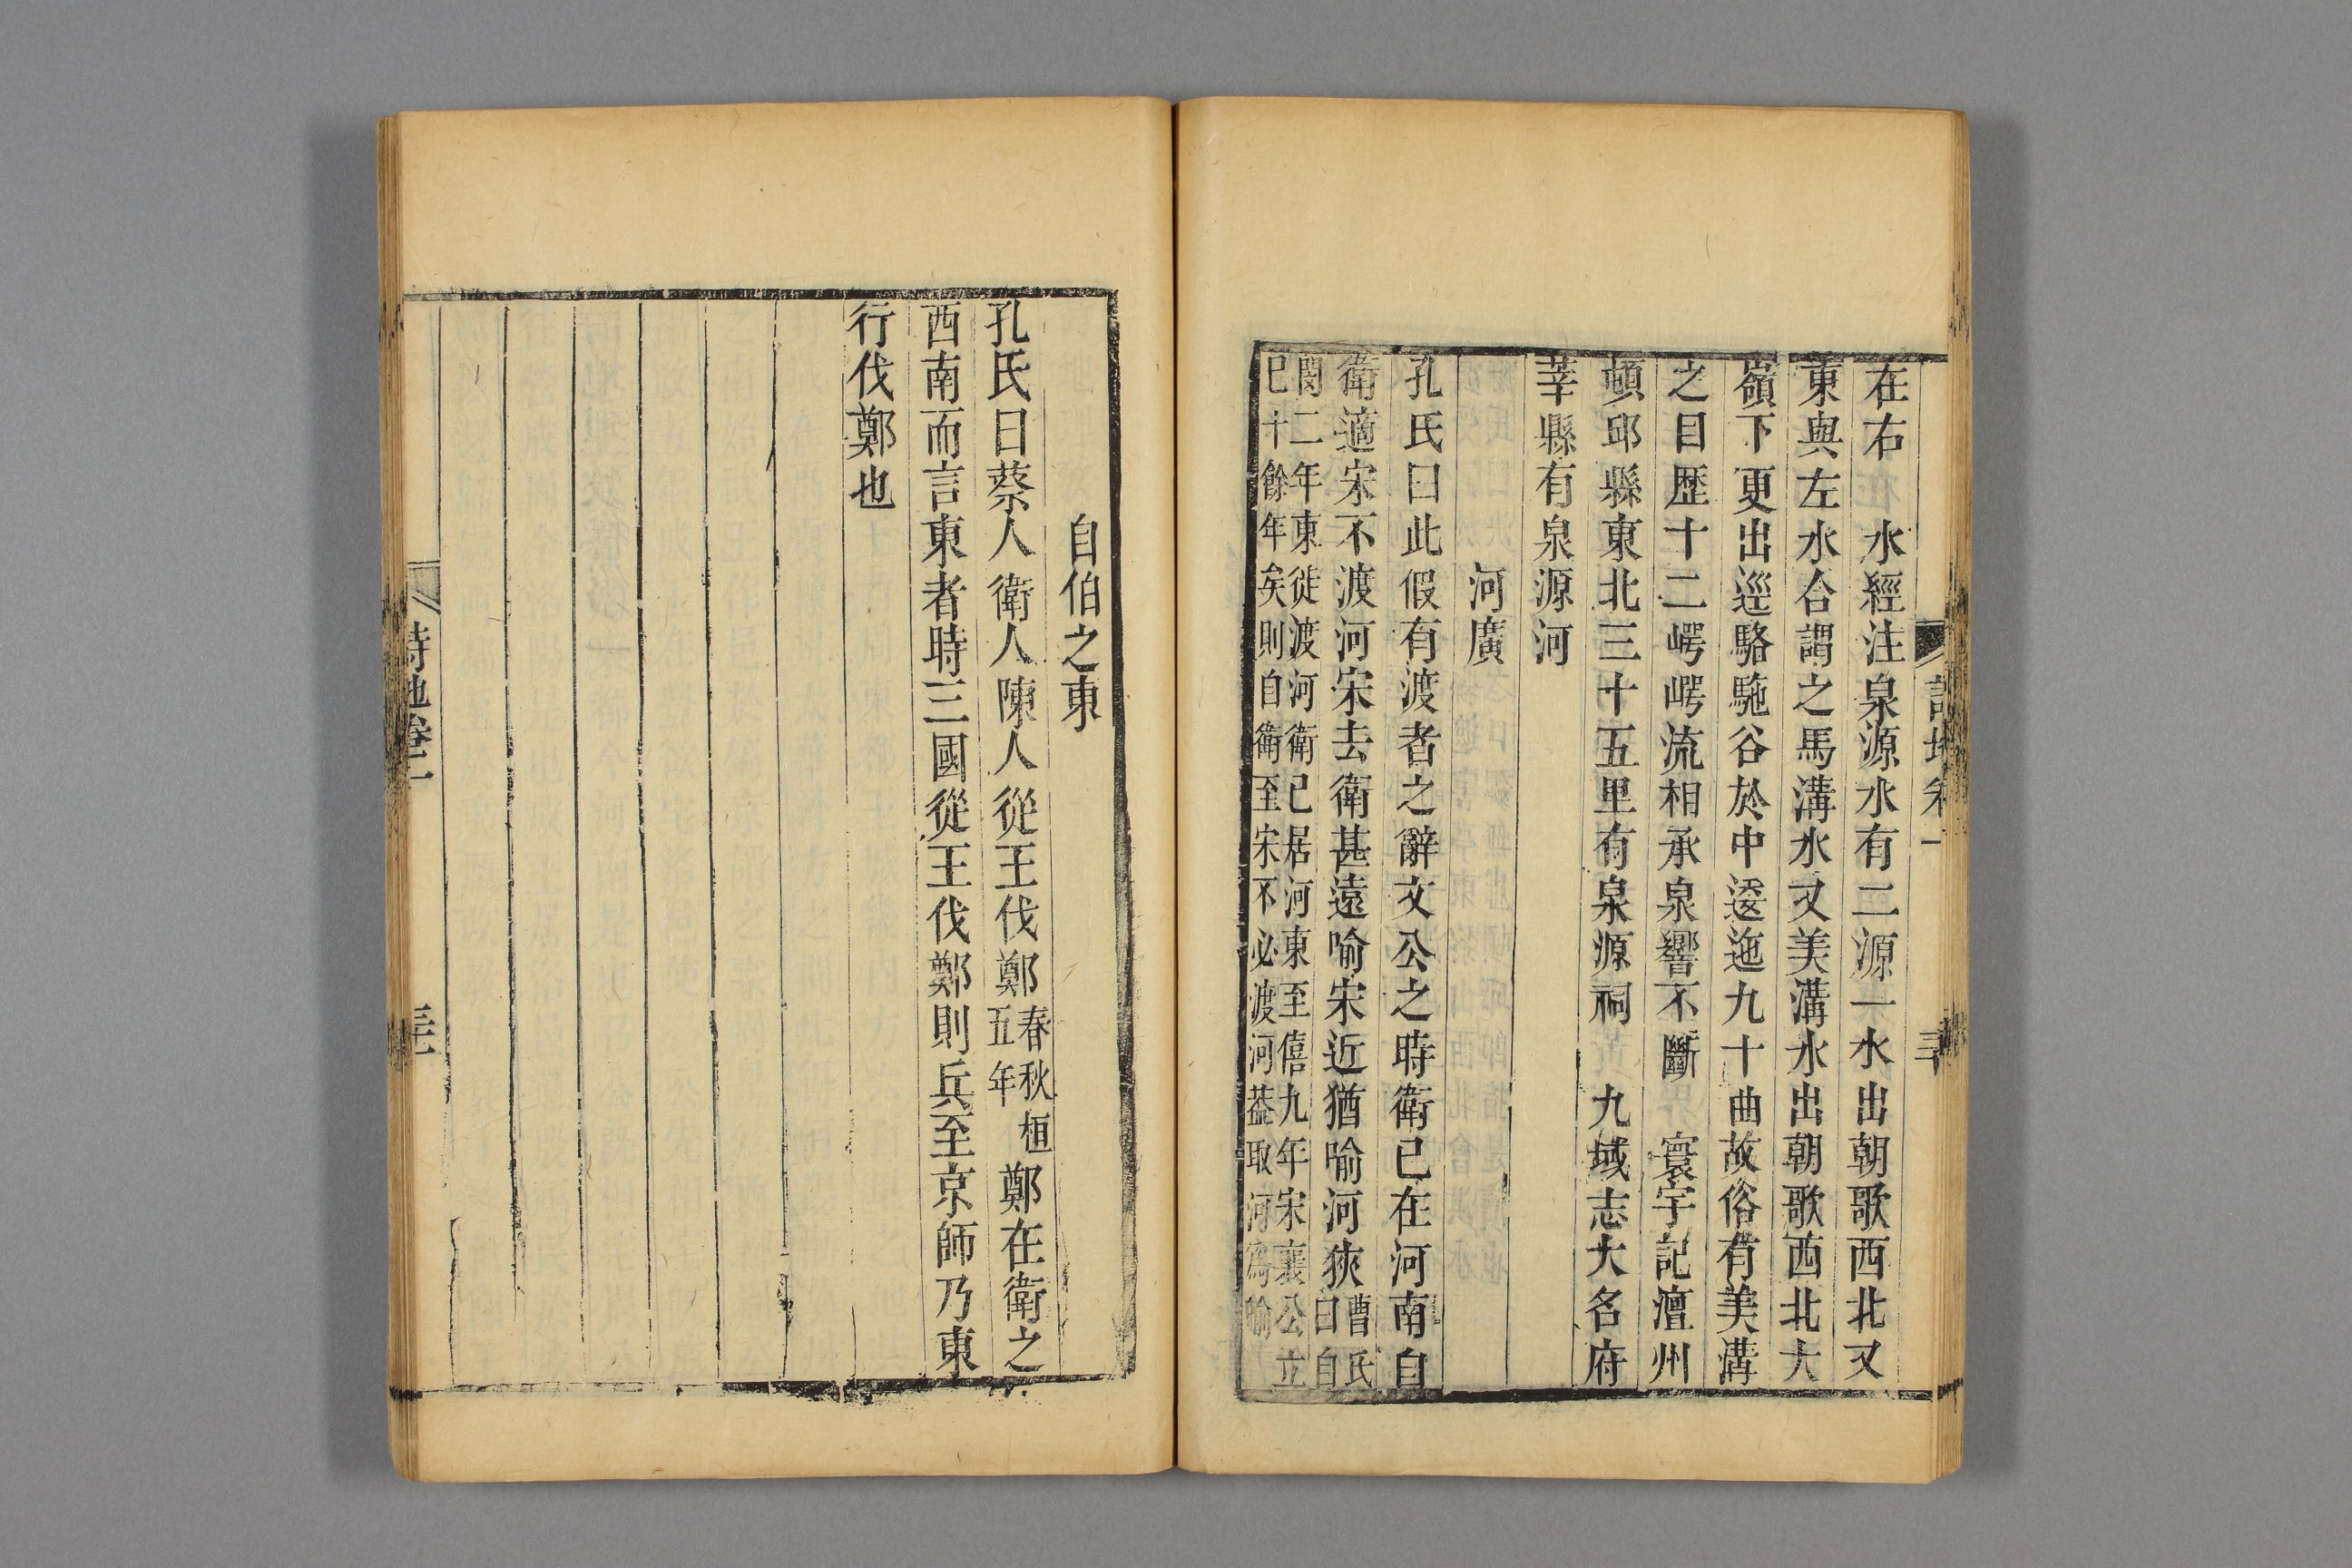 在右　水經注泉源水有二源一水出朝歌西北又
東與左水合謂之馬溝水又美溝水出朝歌西北大
嶺下更出逕駱駞谷於中逶迤九十曲故俗有美溝
之目歷十二崿崿流相承泉響不斷　寰宇記澶州
頓邱縣東北三十五里有泉源祠　九域志大名府
莘縣有泉源河
河廣
孔氏曰此假有渡者之辭文公之時衛已在河南自
衛適宋不渡河宋去衛甚遠喻宋近猶喻河狹曹氏曰自
閔二年東徙渡河衛已居河東至僖九年宋襄公立
已十餘年矣則自衛至宋不必渡河葢取河爲喻
自伯之東
孔氏曰蔡人衛人陳人從王伐鄭春秋桓五年鄭在衛之
西南而言東者時三國從王伐鄭則兵至京師乃東
行伐鄭也
詩地卷一